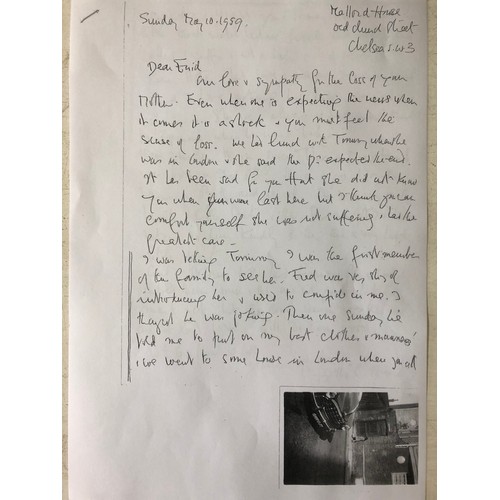 Sunday May 10. 1959.
Mallord House
Old Church Street
Chelsea S.W 3
Dear Enid
Our love & sympathy for the loss of your
Mother. Even when one is expecting the news when
it comes it is a shock & you must feel the
sense of loss. We had lunch with Tommy when she
was in London & she said the Dr expected the end.
It has been sad for you that she did not know
you when you were last here but I think you can
comfort yourself she was not suffering & had the
greatest care -
I was telling Tommy I was the first member
of the family to see her. Fred was very shy of
introducing her & used to confide in me. I
thought he was joking. Then one Sunday he
told me to put on my best clothes & manners'
& we went to some house in London where you all